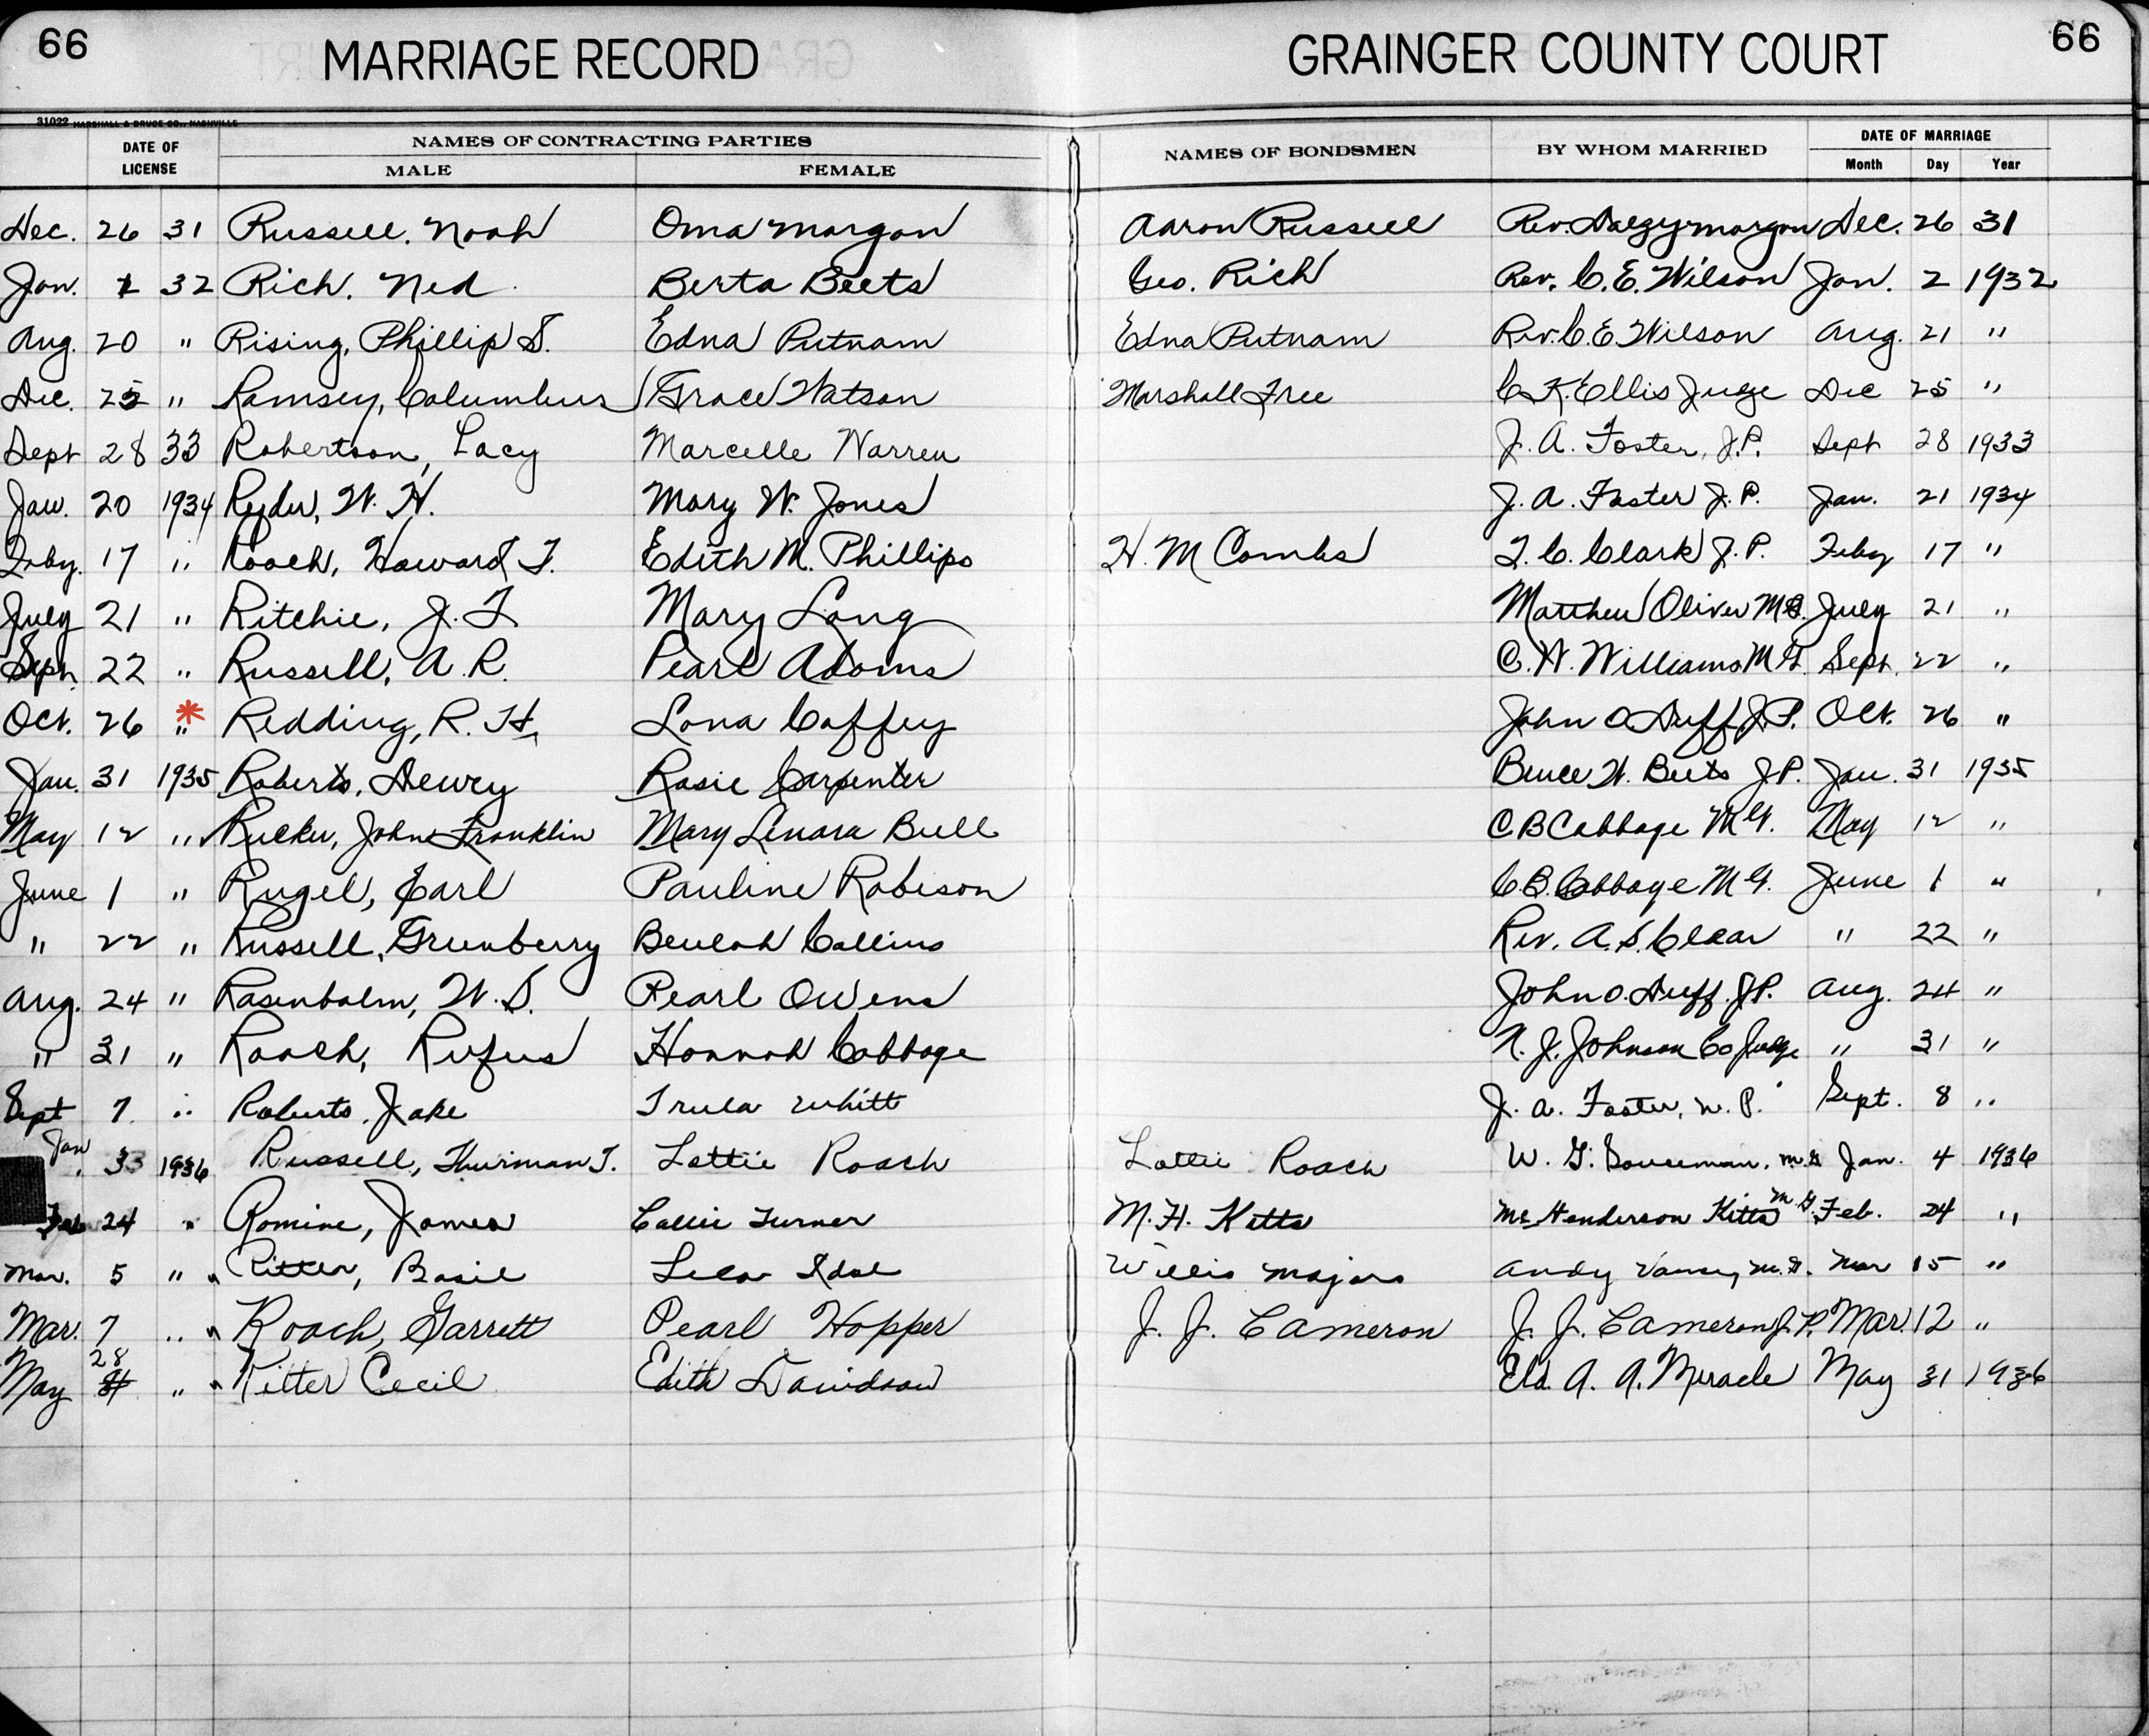 66 MARRIAGE RECORD GRAINGER COUNTY COURT 66
31022 MARSHALL & BRUCE CO., NASHVILLE
DATE OF LICENSE NAMES OF CONTRACTING PARTIES NAMES OF BONDSMEN BY WHOM MARRIED DATE OF MARRIAGE
MALE FEMALE Month Day Year
Dec. 26 31 Russell, Noah Oma Morgan Aaron Russell Rev. Morgan Dec. 26 31
Jan. 32 Rich, Ned Berta Beets Geo. Rich Rev. C. E. Wilson Jan. 2 1932
Aug. 20 " Rising, Phillip S. Edna Putnam Edna Putnam Rev. C. E. Wilson Aug. 21 "
Dec. 25 " Ramsey, Columbus Grace Watson Marshall Free C. K. Ellis Judge Dec 25 "
Sept 28 33 Robertson, Lacy Marcelle Warren J. A. Foster, J.P. Sept 28 1933
Jan. 20 1934 Ryder, W. H. Mary W. Jones J. A. Foster J. P. Jan. 21 1934
Feby. 17 " Roach, Howard F. Edith M. Phillips H. M Combs T. C. Clark J. P. Feby 17 "
July 21 " Ritchie, J. F Mary Long Matthew Oliver M.G. July 21 "
Sept. 22 " Russell, A. R. Pearl Adams C. W. Williams M G. Sept. 22 "
Oct. 26 " * Redding, R. H. Lona Caffey John O Duff J. P. Oct. 26 "
Jan. 31 1935 Roberts, Dewey Rosie Carpenter Bruce W. Beets J P. Jan. 31 1935
May 12 " Rucker, John Franklin Mary Lenora Bull C B Cabbage M G. May 12 "
June 1 " Rugel, Earl Pauline Robison C. B. Cabbage M G. June 1 "
" 22 " Russell, Greenberry Beulah Collins Rev. A. S. " 22 "
Aug. 24 " Rasenbalm, W. S. Pearl Owens John O. Duff. J P. Aug. 24 "
" 31 " Roach, Rufus Hannah Cabbage N. J. Johnson Co Judge " 31 "
Sept 7. " Roberts, Jake Trula Whitt J. A. Foster, N. P. Sept. 8 "
Jan 3 1936 Russell, Thurman T. Lottie Roach Lottie Roach W. G. m.g Jan. 4 1936
Feb 24 " Romine, James Callie Turner M. H. Kitts Mc Henderson Kitts M G. Feb. 24 "
Mar. 5 " Ritter, Basil Lela Idol Willis Majors Andy Vance, M. G. Mar 15 "
Mar. 7 " Roach, Garrett Pearl Hopper J. J. Cameron J. J. Cameron J. P. Mar. 12 "
May 28 " Ritter Cecil Edith Davidson Eld. A. A. Miracle May 31 1936